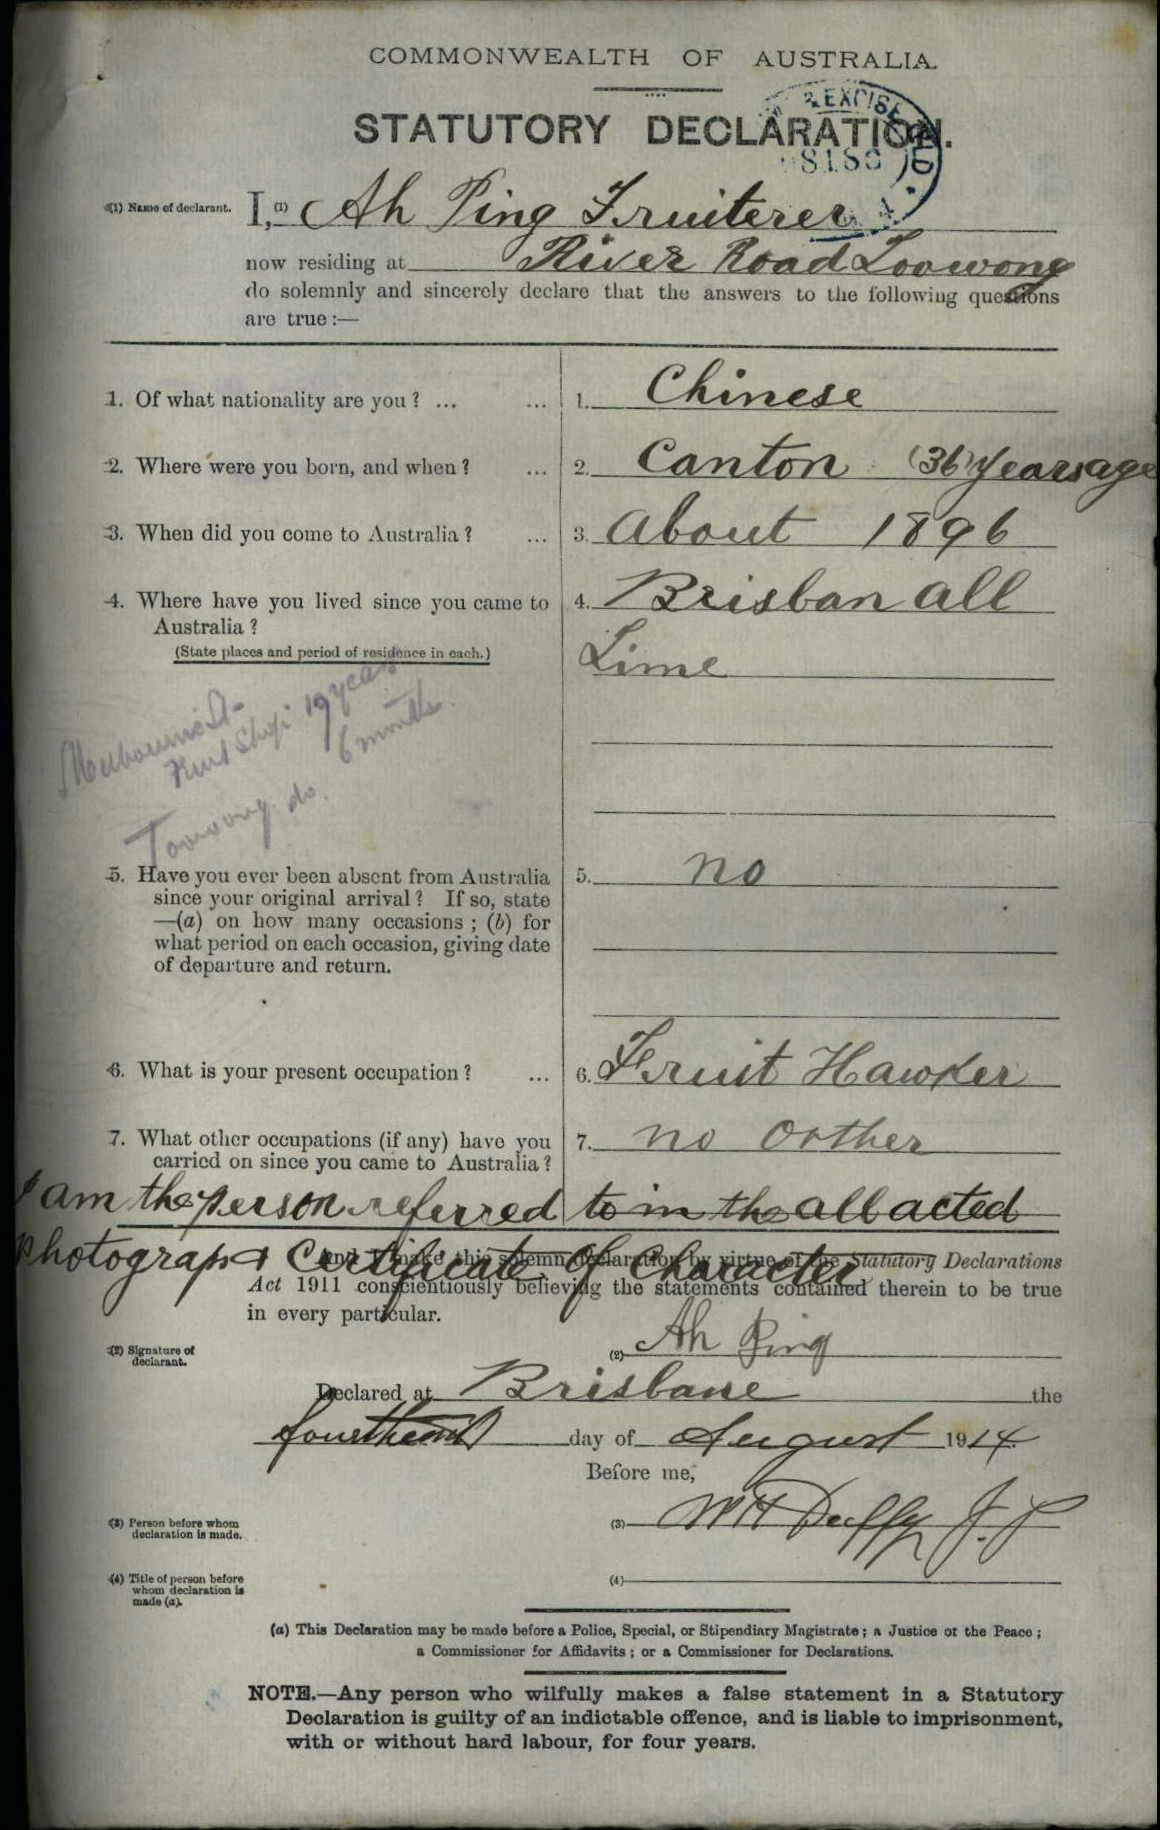 COMMONWEALTH OF AUSTRALIA.
STATUTORY DECLARATION.
& EXCISE
8188
(1) Name of declarant. I, (1) Ah Ping Fruiterer
now residing at River Road Toowong
do solemnly and sincerely declare that the answers to the following questions
are true:—
1. Of what nationality are you? ... ... 1. Chinese
2. Where were you born, and when? ... 2. Canton (36) years age
3. When did you come to Australia? ... 3. About 1896
4. Where have you lived since you came to 4. Brisban all
Australia?
(State places and period of residence in each.) Time
Melbourne St.
Fruit Shop 19 years
Toowong do. 6 months.
5. Have you ever been absent from Australia 5. no
since your original arrival? If so, state
—(a) on how many occasions; (b) for
what period on each occasion, giving date
of departure and return.
6. What is your present occupation? ... 6. Fruit Hawker
7. What other occupations (if any) have you 7. no oother
carried on since you came to Australia?
I am the person referred to in the all acted
photograph & Certificate of Character
and I make this solemn declaration by virtue of the Statutory Declarations
Act 1911 conscientiously believing the statements contained therein to be true
in every particular.
(2) Signature of
declarant. (2) Ah Ping
Declared at Brisbane the
fourtheenth day of August 1914.
Before me,
(3) Person before whom
declaration is made. (3) W H Duffy J. P
(4) Title of person before
whom declaration is
made (a). (4)
(a) This Declaration may be made before a Police, Special, or Stipendiary Magistrate; a Justice of the Peace;
a Commissioner for Affidavits; or a Commissioner for Declarations.
NOTE.—Any person who wilfully makes a false statement in a Statutory
Declaration is guilty of an indictable offence, and is liable to imprisonment,
with or without hard labour, for four years.